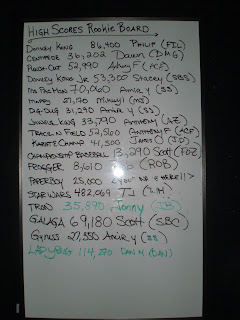 HIGH SCORES ROOKIE BOARD
DONKEY KONG 86,400 PHILIP (FIL)
CENTIPEDE 36,202 DAWN (DMG)
PUNCH-OUT 52,990 (ACF)
DONKEY KONG JR 53,300 STACEY (SBS)
MS PAC MAN 70,060 AMIR Y
MAPPY MIKHYL (MJ)
DIG-DUG AMIR Y (SS)
JUNGLE KING 33,790 ANTHONY
TRACK N FIELD 52,560 ANTHONY F (ACF)
KARATE CHAMP 41,500 JAMES O (JO)
CHAMPIONSHIP BASEBALL 13,290 SCOTT
FROGGER 8,610 ROB (ROB)
PAPERBOY 25,000
STAR WARS 482,069 TJ
TRON 35,890 JONNY (JB)
GALAGA 69,180 SCOTT (SBC)
GYRUSS 27,350 AMIR Y (SS)
LADYBUG 114,270 DAN M (DAN)